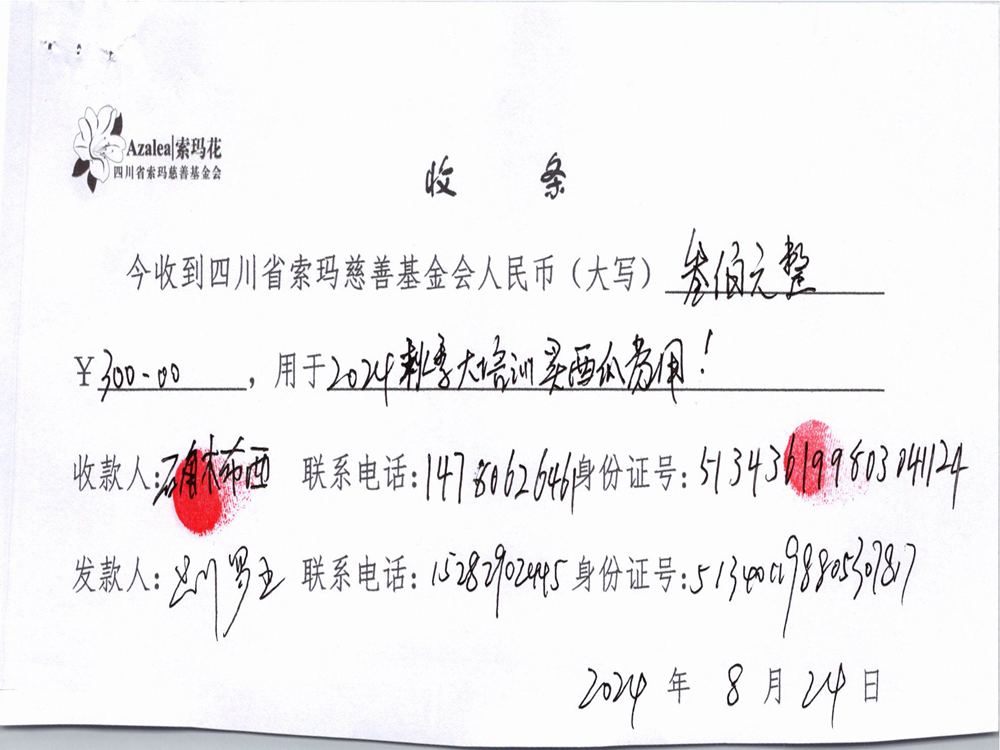 Azalea|索玛花
四川省索玛慈善基金会
收 条
今收到四川省索玛慈善基金会人民币（大写）叁佰元整
¥300.00，用于2024 季大培训买西瓜费用！
收款人: 木布西 联系电话:14780626461身份证号:513436199803041124
发款人: 联系电话:15282902445身份证号:
2024 年 8 月 24 日